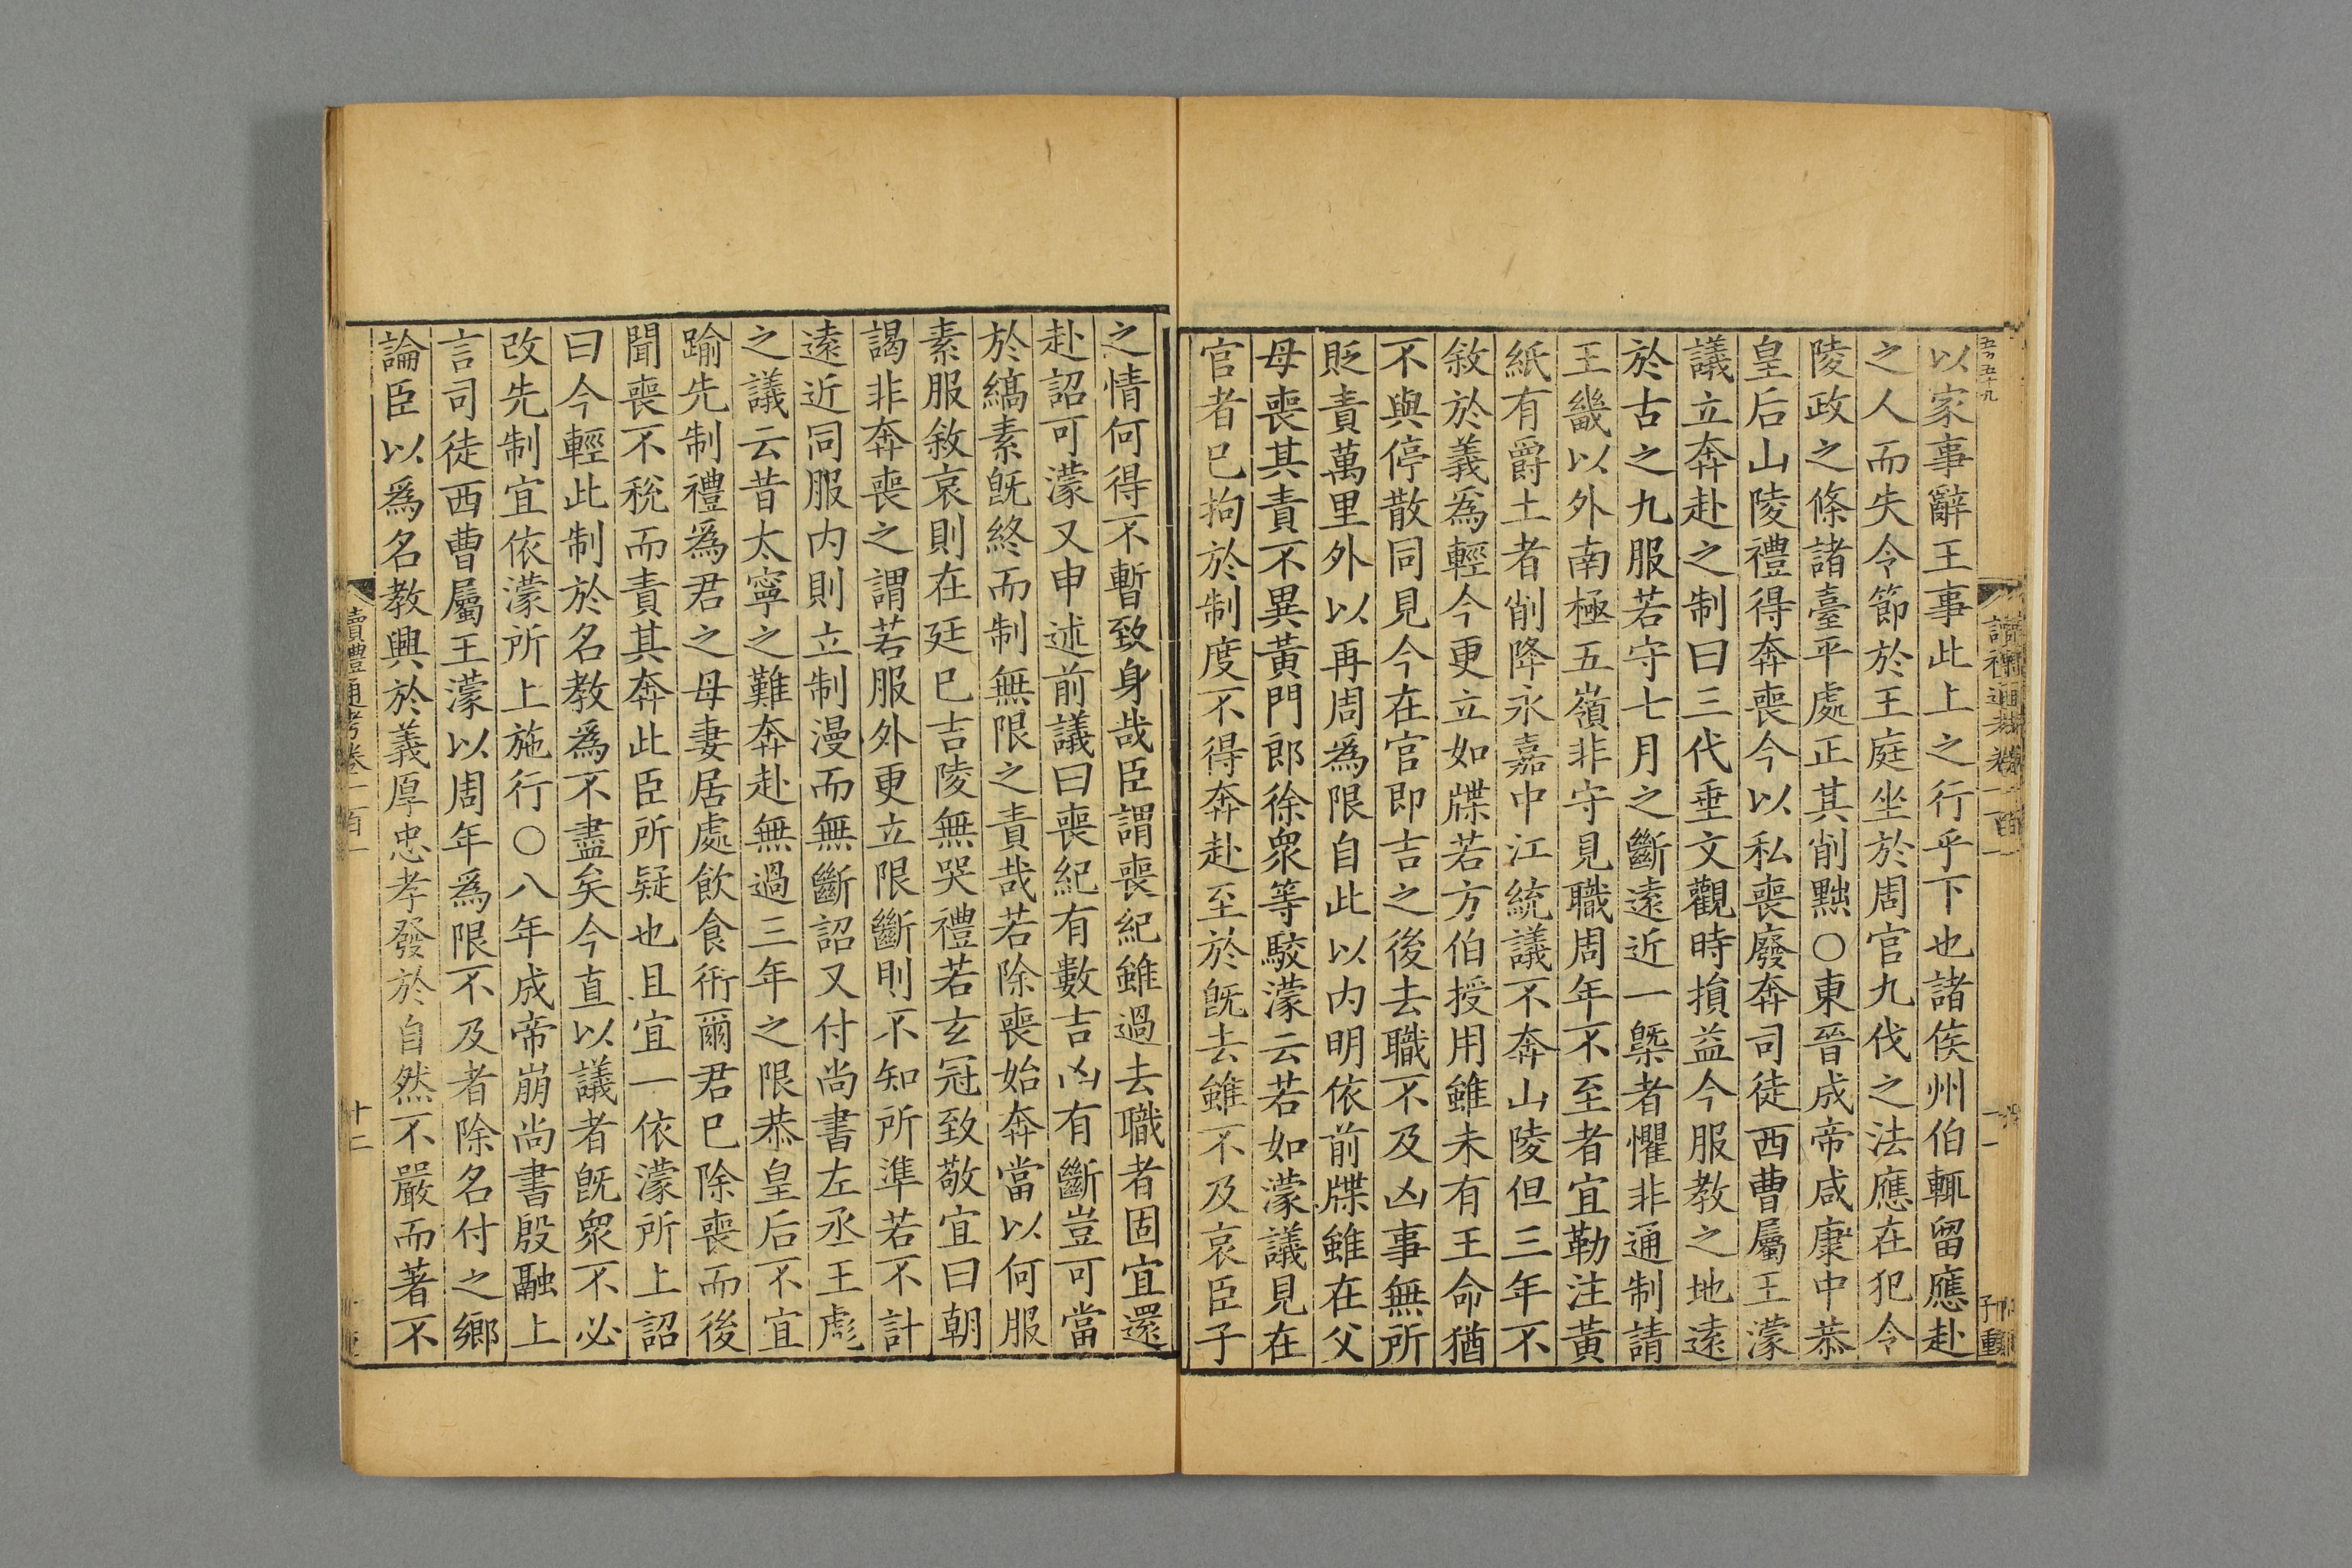 五万五十九
讀禮通考卷一百一
十一
子重
以家事辭王事此上之行乎下也諸侯州伯輒留應赴
之人而失令節於王庭坐於周官九伐之法應在犯令
陵政之條諸臺平處正其削黜○東晉成帝咸康中恭
皇后山陵禮得奔喪今以私喪廢奔司徒西曹屬王濛
議立奔赴之制曰三代垂文觀時損益今服教之地遠
於古之九服若守七月之斷遠近一槩者懼非通制請
王畿以外南極五嶺非守見職周年不至者宜勒注黃
紙有爵土者削降永嘉中江統議不奔山陵但三年不
敘於義爲輕今更立如牒若方伯授用雖未有王命猶
不與停散同見今在官即吉之後去職不及凶事無所
貶責萬里外以再周爲限自此以内明依前牒雖在父
母喪其責不異黃門郎徐衆等駮濛云若如濛議見在
官者已拘於制度不得奔赴至於旣去雖不及哀臣子
之情何得不暫致身哉臣謂喪紀雖過去職者固宜還
赴詔可濛又申述前議曰喪紀有數吉凶有斷豈可當
於縞素旣終而制無限之責哉若除喪始奔當以何服
素服敘哀則在廷已吉陵無哭禮若玄冠致敬宜曰朝
謁非奔喪之謂若服外更立限斷則不知所準若不計
遠近同服内則立制漫而無斷詔又付尚書左丞王彪
之議云昔太寧之難奔赴無過三年之限恭皇后不宜
踰先制禮爲君之母妻居處飲食衎爾君已除喪而後
聞喪不稅而責其奔此臣所疑也且宜一依濛所上詔
曰今輕此制於名教爲不盡矣今直以議者旣衆不必
改先制宜依濛所上施行○八年成帝崩尚書殷融上
言司徒西曹屬王濛以周年爲限不及者除名付之鄉
論臣以爲名教興於義厚忠孝發於自然不嚴而著不
讀禮通考卷一百一
十二